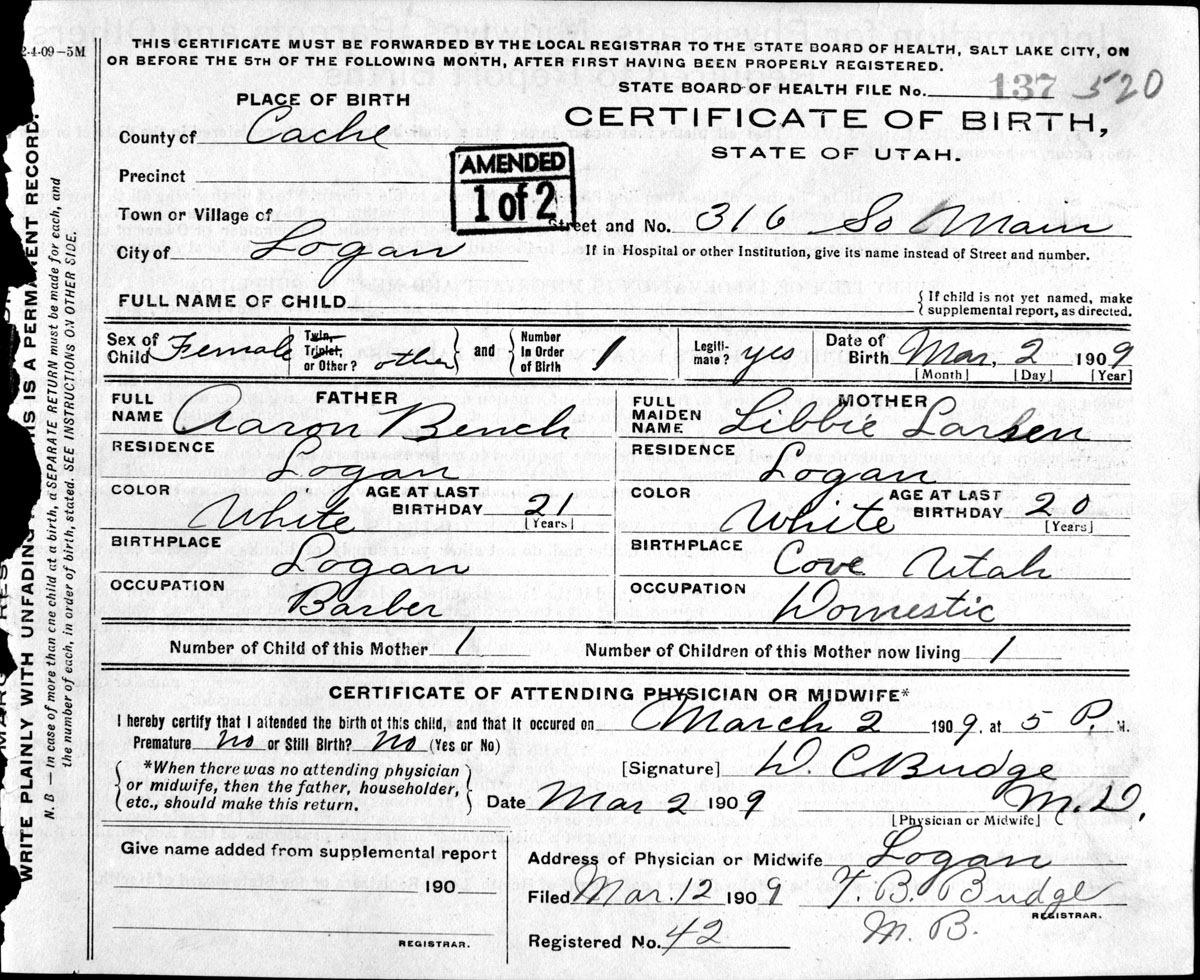 2-4-09-5M
THIS CERTIFICATE MUST BE FORWARDED BY THE LOCAL REGISTRAR TO THE STATE BOARD OF HEALTH, SALT LAKE CITY, ON
OR BEFORE THE 5TH OF THE FOLLOWING MONTH, AFTER FIRST HAVING BEEN PROPERLY REGISTERED.
STATE BOARD OF HEALTH FILE No. 137 520
PLACE OF BIRTH
CERTIFICATE OF BIRTH,
STATE OF UTAH.
County of Cache
AMENDED
1 of 2
Precinct
Town or Village of
Street and No. 316 So Main
City of Logan
If in Hospital or other Institution, give its name instead of Street and number.
FULL NAME OF CHILD
{ If child is not yet named, make
supplemental report, as directed.
Sex of Child Female
Twin, Triplet, or Other? other } and { Number In Order of Birth 1
Legiti-mate? yes
Date of Birth Mar, 2 1909
[Month] [Day] [Year]
FATHER
FULL NAME Aaron Bench
RESIDENCE Logan
COLOR White
AGE AT LAST BIRTHDAY 21
[Years]
BIRTHPLACE Logan
OCCUPATION Barber
MOTHER
FULL MAIDEN NAME Libbie Larsen
RESIDENCE Logan
COLOR White
AGE AT LAST BIRTHDAY 20
[Years]
BIRTHPLACE Cove Utah
OCCUPATION Domestic
Number of Child of this Mother 1 Number of Children of this Mother now living 1
CERTIFICATE OF ATTENDING PHYSICIAN OR MIDWIFE*
I hereby certify that I attended the birth of this child, and that it occured on March 2 1909, at 5 P. M.
Premature No or Still Birth? No (Yes or No)
{ *When there was no attending physician
or midwife, then the father, householder,
etc., should make this return. }
[Signature] D. C. Budge
M. D.
Date Mar 2 1909
[Physician or Midwife]
Give name added from supplemental report
190
REGISTRAR.
Address of Physician or Midwife Logan
Filed Mar. 12 1909 T. B. Budge
REGISTRAR.
M. B.
Registered No. 42
WRITE PLAINLY WITH UNFADING IS A PERMANENT RECORD.
N. B — In case of more than one child at a birth, a SEPARATE RETURN must be made for each, and
the number of each, in order of birth, stated. SEE INSTRUCTIONS ON OTHER SIDE.